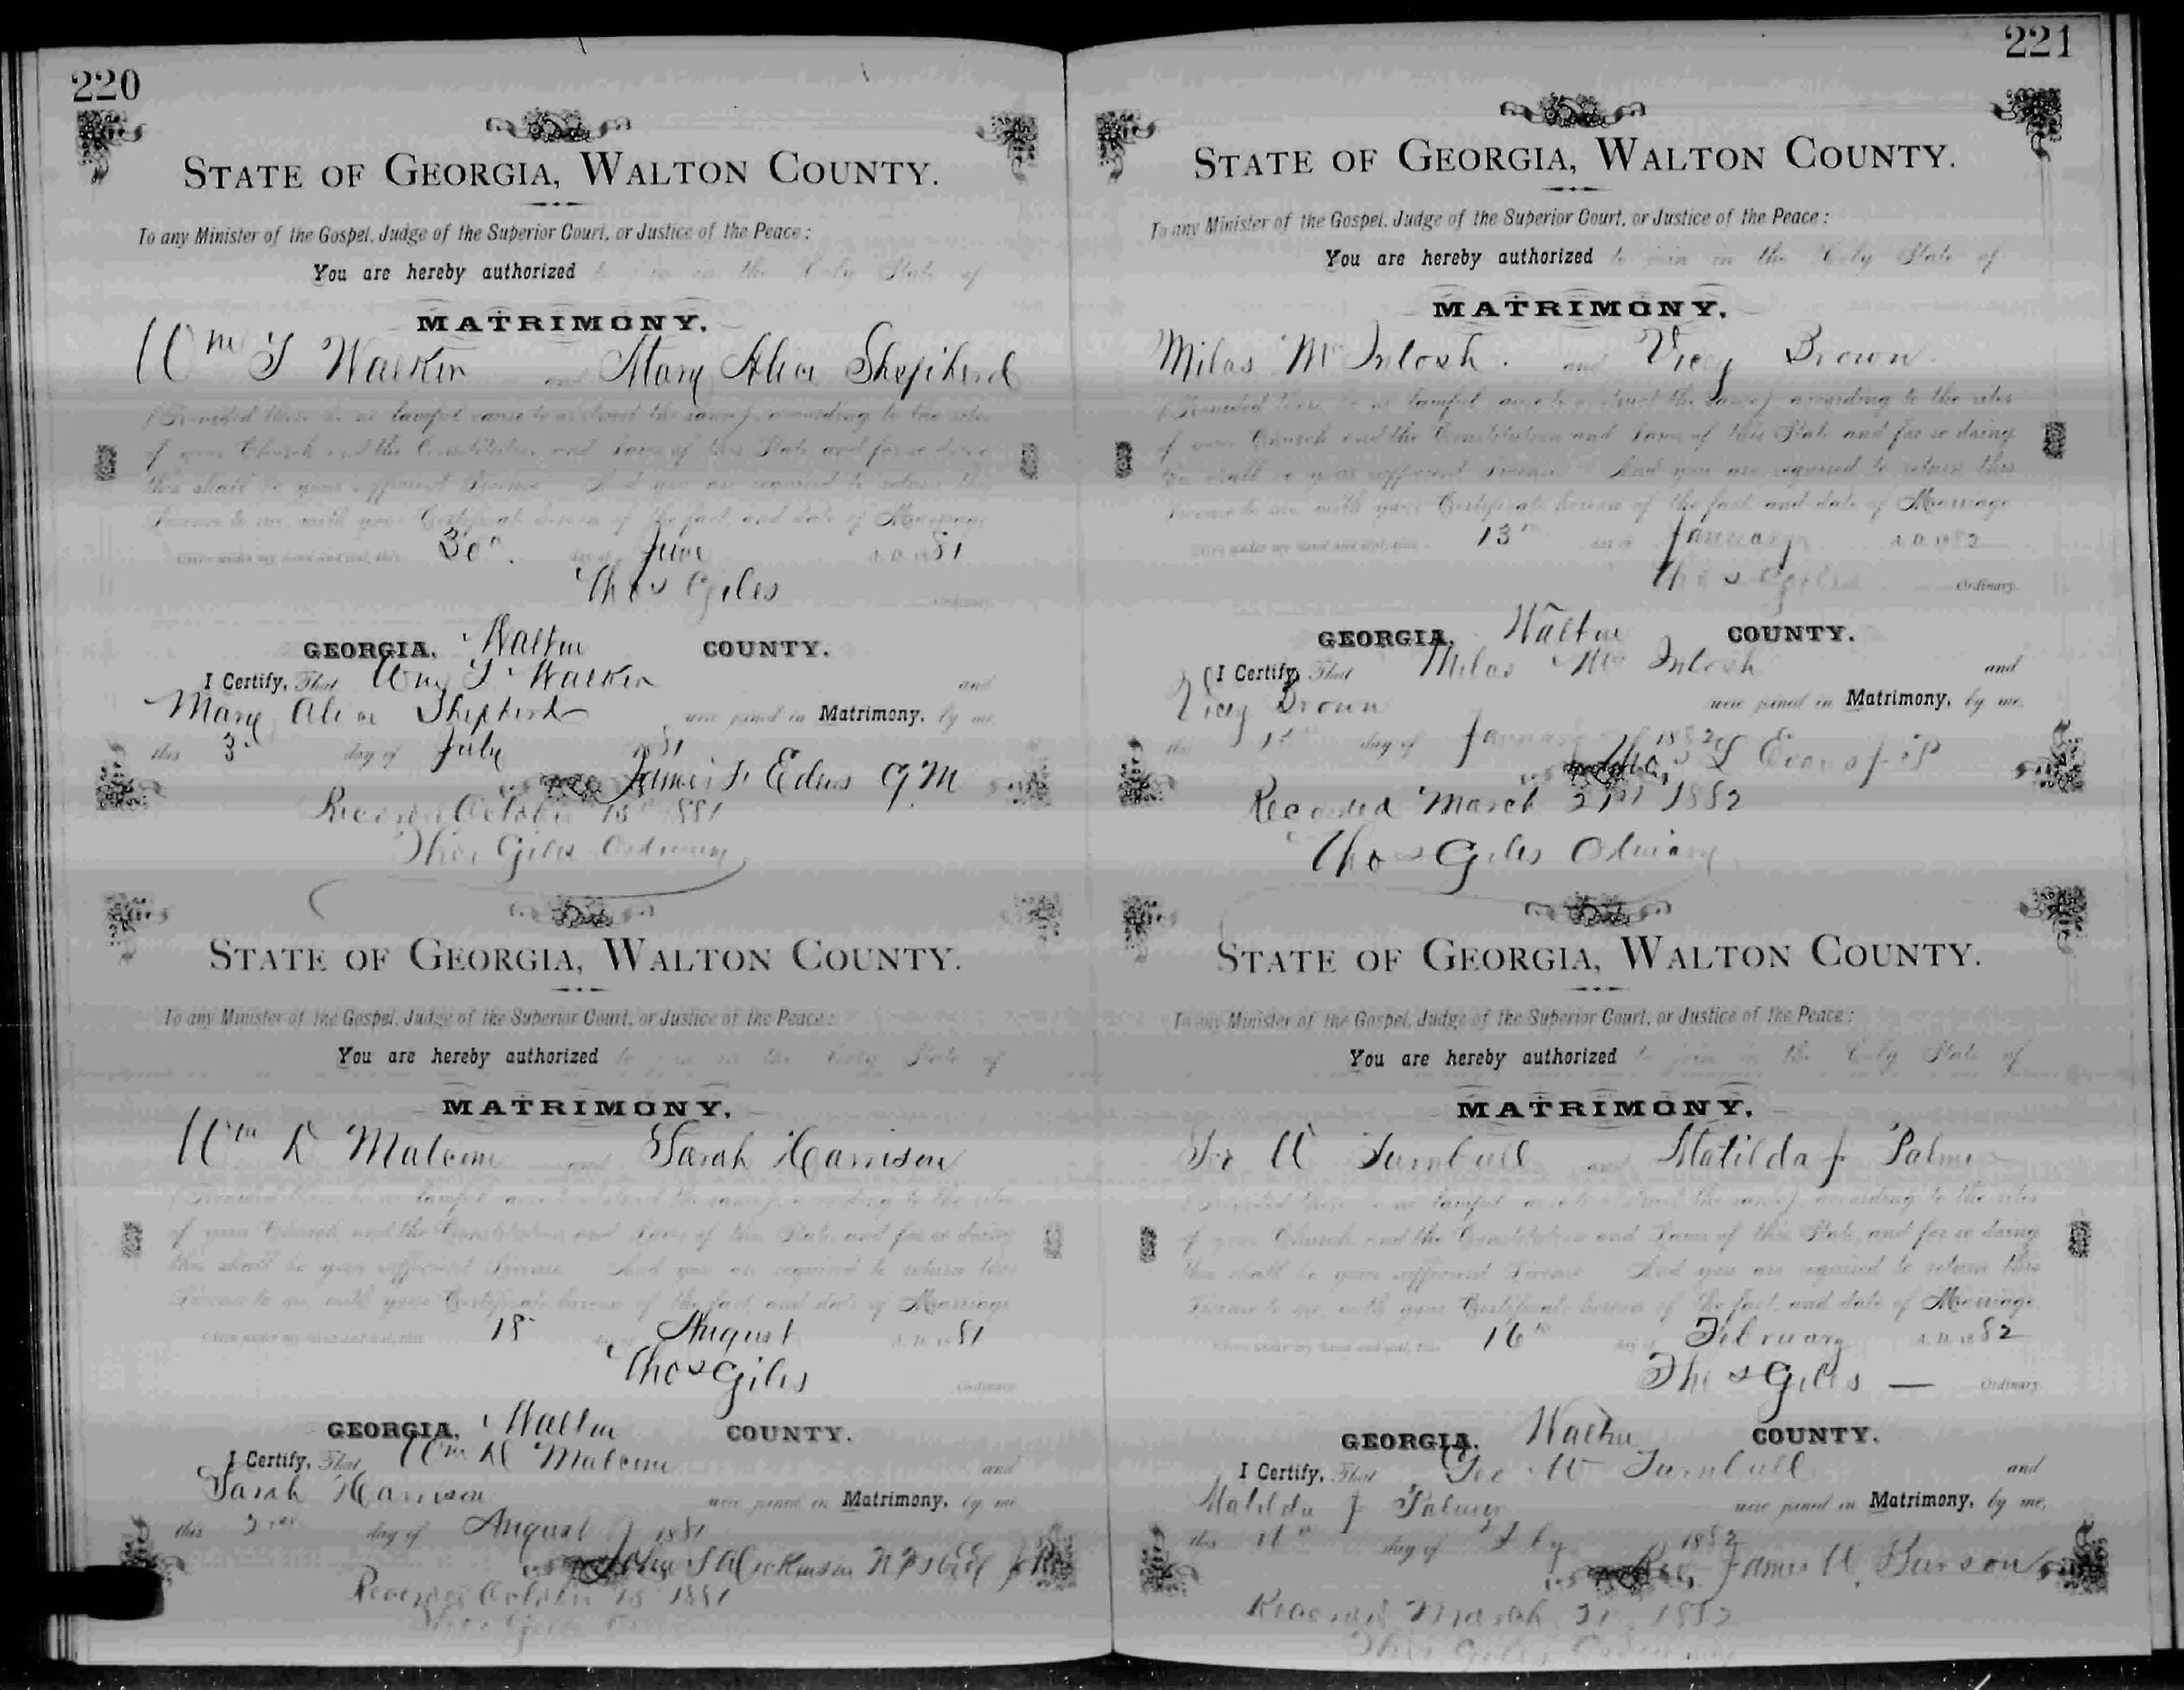 220
STATE OF GEORGIA, WALTON COUNTY.
To any Minister of the Gospel, Judge of the Superior Court, or Justice of the Peace:
You are hereby authorized to join in the Holy State of
MATRIMONY,
Wm J Walker and Mary Alice Shepherd
(Provided there be no lawful cause to obstruct the same) according to the rites
of your Church and the Constitution and Laws of this State and for so doing
this shall be your sufficient License And you are required to return this
License to me, with your Certificate hereon of the fact, and date of Marriage
Given under my hand and seal, this 30th day of June A.D. 1881
Thos Giles Ordinary
GEORGIA, Walton COUNTY.
I Certify, That Wm J Walker and
Mary Alice Shepherd were joined in Matrimony, by me,
this 3d day of July 1881
James F G M
Recorded October 15 1881
Thos Giles Ordinary
STATE OF GEORGIA, WALTON COUNTY.
To any Minister of the Gospel, Judge of the Superior Court, or Justice of the Peace:
You are hereby authorized to join in the Holy State of
MATRIMONY,
Wm D Malcom and Sarah Harrison
(Provided there be no lawful cause to obstruct the same) according to the rites
of your Church and the Constitution and Laws of this State and for so doing
this shall be your sufficient License And you are required to return this
License to me, with your Certificate hereon of the fact, and date of Marriage
Given under my hand and seal, this day of August A.D. 1881
Thos Giles Ordinary
GEORGIA, Walton COUNTY.
I Certify, That Wm D Malcom and
Sarah Harrison were joined in Matrimony, by me
this day of August 1881
John S
Recorded October 15 1881
Thos Giles
221
STATE OF GEORGIA, WALTON COUNTY.
To any Minister of the Gospel, Judge of the Superior Court, or Justice of the Peace:
You are hereby authorized to join in the Holy State of
MATRIMONY,
Milas McIntosh and Vicy Brown
(Provided there be no lawful cause to obstruct the same) according to the rites
of your Church and the Constitution and Laws of this State and for so doing
this shall be your sufficient License And you are required to return this
License to me, with your Certificate hereon of the fact and date of Marriage
Given under my hand and seal, this 13th day of January A.D. 1882
Thos Giles Ordinary
GEORGIA, Walton COUNTY.
I Certify, That Milas McIntosh and
Vicy Brown were joined in Matrimony, by me,
this day of January 1882
Thos S Evans J P
Recorded March 21st 1882
Thos Giles Odinary
STATE OF GEORGIA, WALTON COUNTY.
To any Minister of the Gospel, Judge of the Superior Court, or Justice of the Peace:
You are hereby authorized to join in the Holy State of
MATRIMONY,
Geo W Turnbull and Matilda J Palmer
(Provided there be no lawful cause to obstruct the same) according to the rites
of your Church and the Constitution and Laws of this State, and for so doing
this shall be your sufficient License And you are required to return this
License to me, with your Certificate hereon of the fact, and date of Marriage
Given under my hand and seal, this 16th day of February A.D. 1882
Thos Giles Ordinary
GEORGIA, Walton COUNTY.
I Certify, That Geo W Turnbull and
Matilda J Palmer were joined in Matrimony, by me,
this day of Feby 1882
Rev James W
Recorded March 21 1882
Thos Giles Ordinary